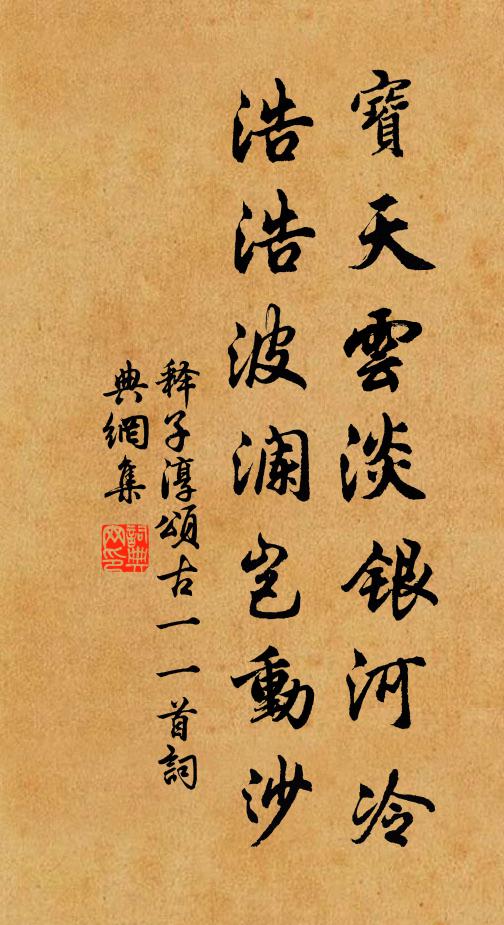 寶天雲淡銀河冷
浩浩波瀾豈動沙
释子淳頌古一一首詞
典網集
詞典
网印